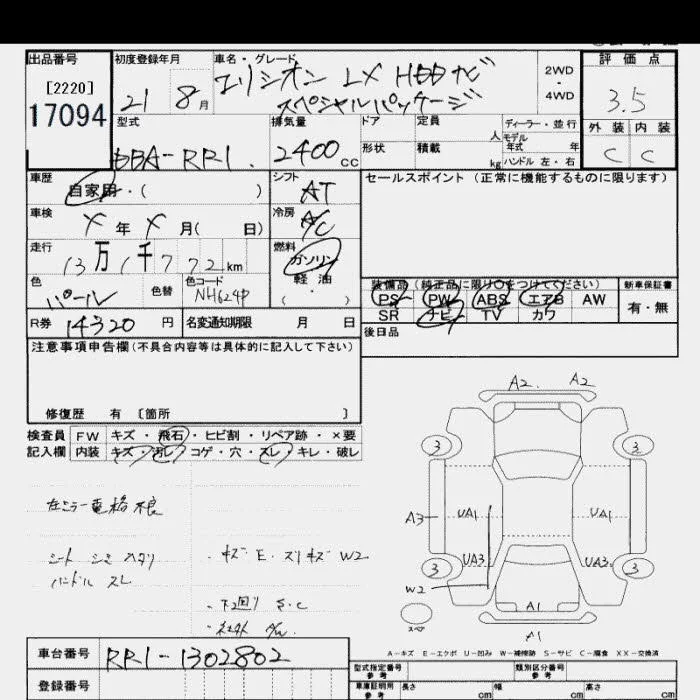 出品番号 初度登録年月 車名・グレード 評価点
[2220] エリシオン LX HDDナビ 2WD
17094 21 8月 スペシャルパッケージ 4WD 3.5
型式 排気量 ドア 定員 人 ディーラー・並行 外装 内装
モデル年式 年
DBA-RR1 2400cc 形状 積載 kg ハンドル 左・右 C C
車歴 自家用・( ) シフト AT セールスポイント (正常に機能するものに限ります)
車検 X年X月( 日) 冷房 A/C
走行 13万1千772km 燃料 ガソリン
色 パール 色替 色コード NH624P 軽油 ( )
装備品 (純正品に限り○をつけてください) 新車保証書
PS PW ABS エアB AW 有・無
SR ナビ TV カワ
R券 14320円 名変通知期限 月 日 後日品
注意事項申告欄(不具合内容等は具体的に記入して下さい)
修復歴 有 [箇所 ]
検査員 FW キズ・飛石・ヒビ割・リペア跡・×要
記入欄 内装 キズ・汚レ・コゲ・穴・スレ・キレ・破レ
A2 A2
3 3
左ミラー電格不良
A3 UA1 UA1
シート シミ スタリ ・キズ E. スリキズ W2 UA3 UA3
ハンドル スレ 3 3
W2
・下回り S.C A1
スペア
A1
A-キズ E-エクボ U-凹み W-補修跡 S-サビ C-腐食 XX-交換済
車台番号 RR1-1302802 型式指定番号 参考 類別区分番号 参考
登録番号 車庫証明用 参考 長さ cm 幅 cm 高さ cm